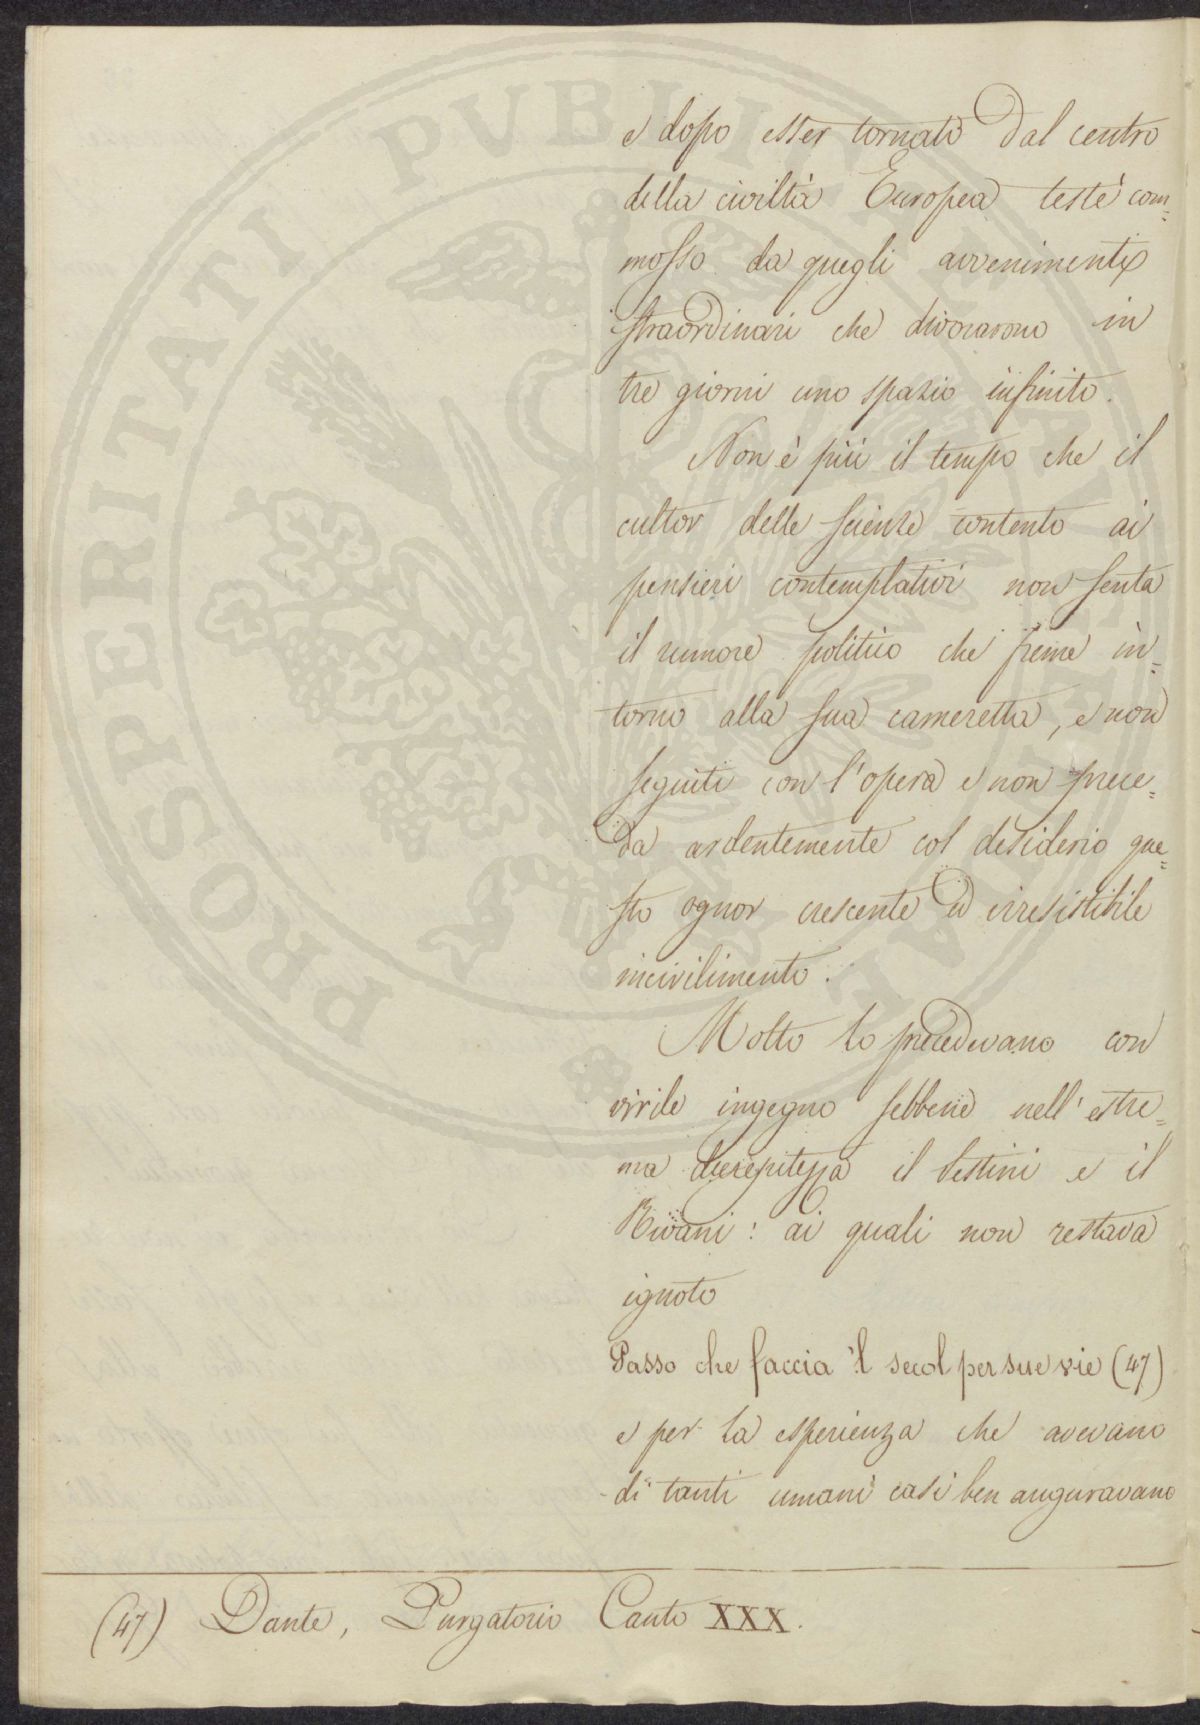 e dopo esser tornato dal centro
della civiltà Europea testè com=
mosso da quegli avvenimenti
straordinari che divorarono in
tre giorni uno spazio infinito.
Non è più il tempo che il
cultor delle scienze contento ai
pensieri contemplativi non senta
il rumore politico che freme in=
torno alla sua cameretta, e non
seguiti con l'opera e non prece=
da ardentemente col desiderio que=
sto ognor crescente ed irresistibile
incivilimento.
Molto lo precedevano con
virile ingegno sebbene nell'estre=
ma decrepitezza il Sestini e il
Rivani: ai quali non restava
ignoto
Passo che faccia 'l secol per sue vie (47)
e per la esperienza che avevano
di tanti umani casi ben auguravano
(47) Dante, Purgatorio Canto XXX.
PUBLICAE PROSPERITATI